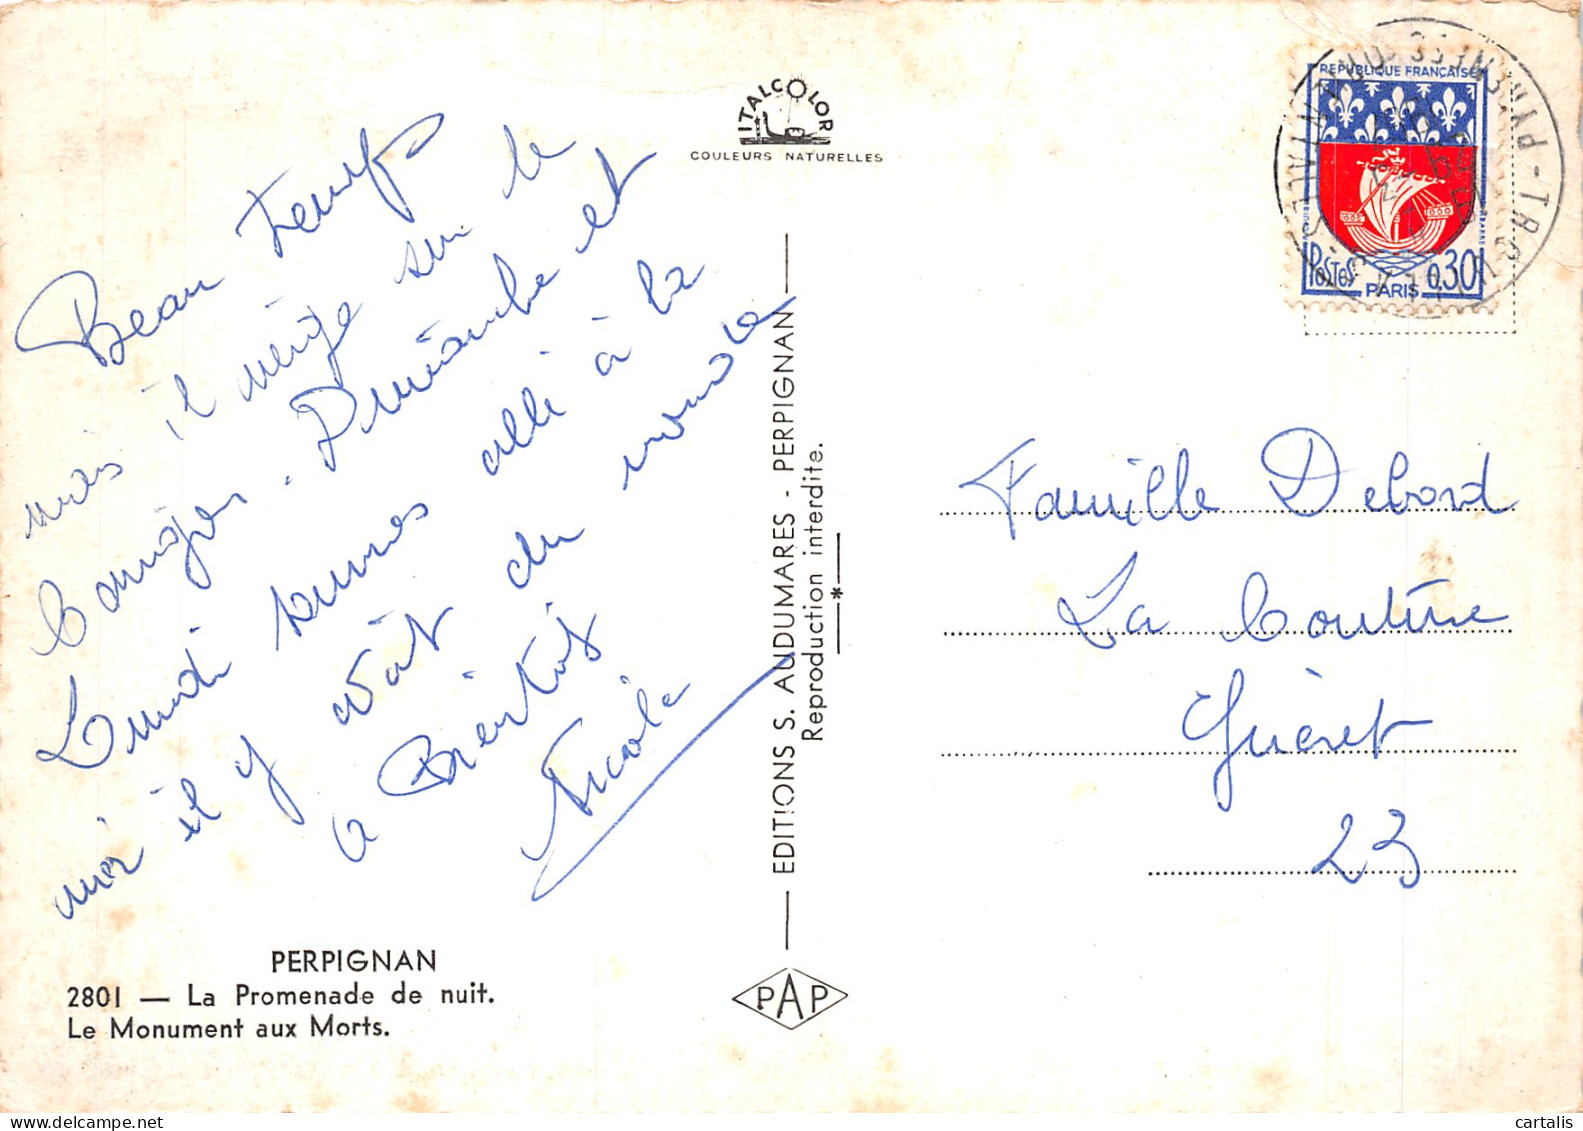 ITALCOLOR
COULEURS NATURELLES
Beau temps
mais il neige sur le
Canigou. Dimanche et
Lundi sommes allé à la
mer il y avait du monde
a Bientôt
Nicole
PERPIGNAN
2801 — La Promenade de nuit.
Le Monument aux Morts.
EDITIONS S. AUDUMARES - PERPIGNAN
Reproduction interdite.
PAP
REPUBLIQUE FRANÇAISE
POSTES
0,30
PARIS
PYRENEES
Famille Debord
La Couture
Guéret
23
cartalis
www.delcampe.net